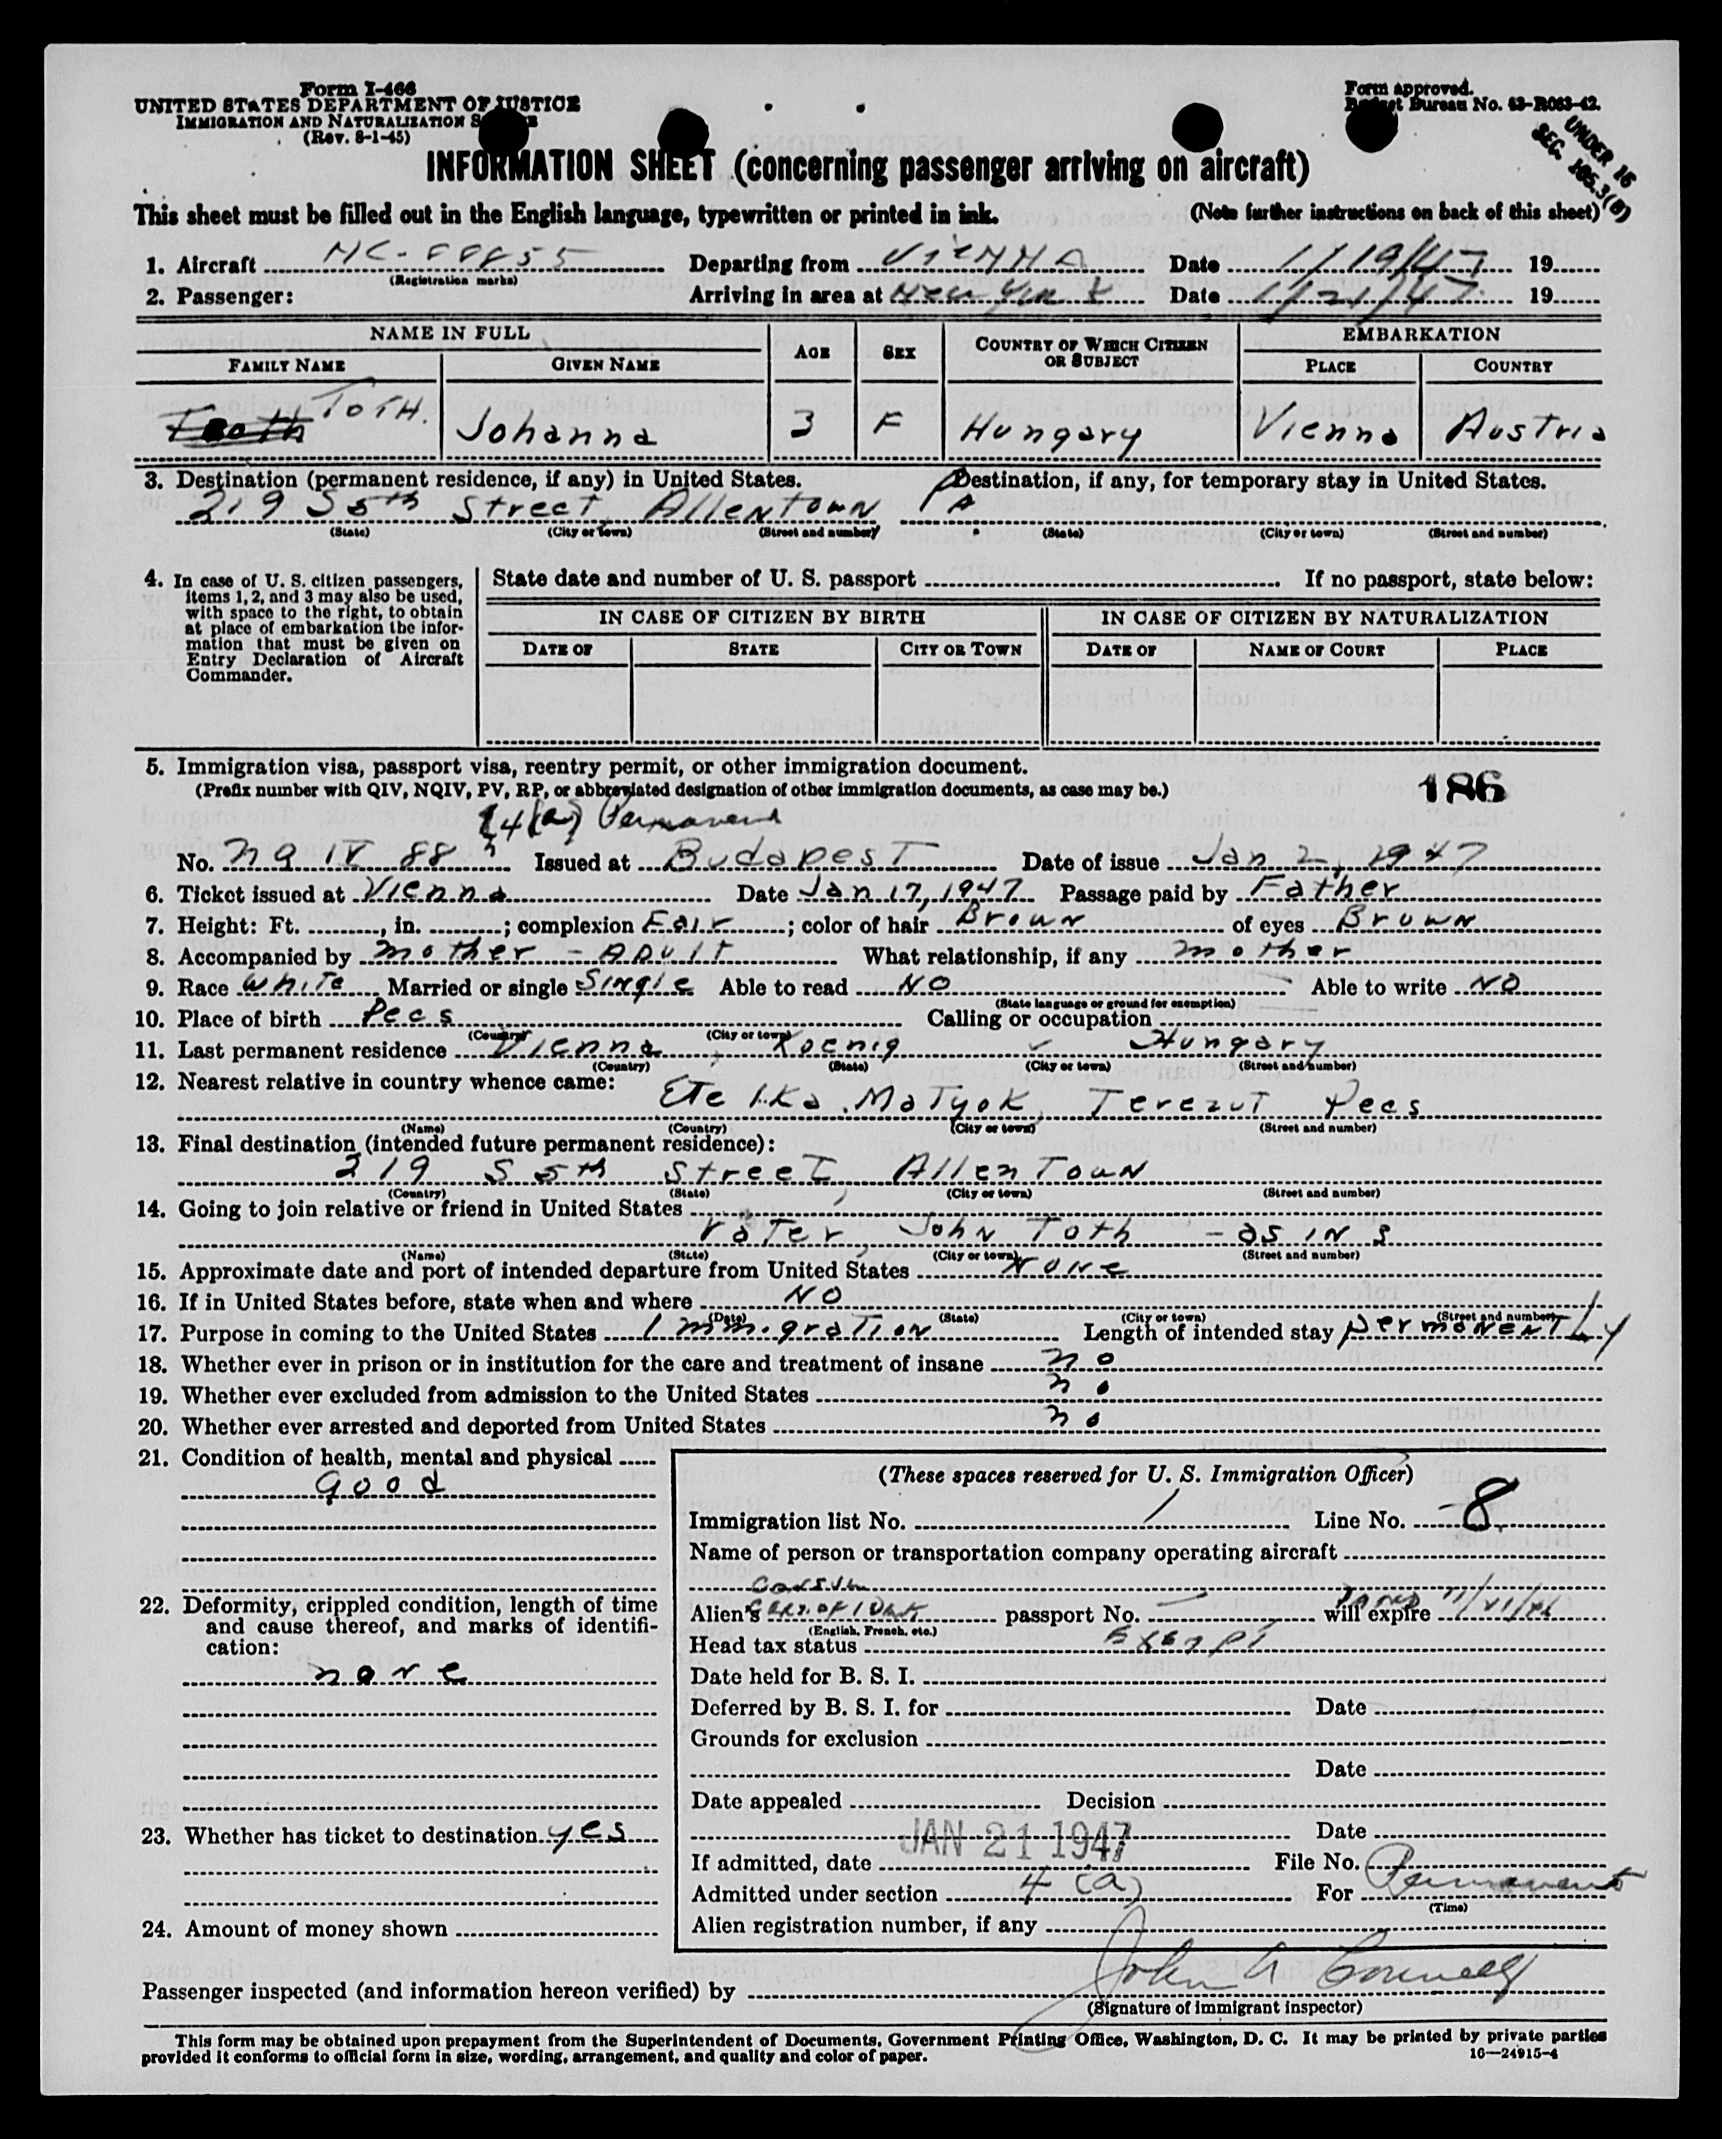 Form I-466
UNITED STATES DEPARTMENT OF JUSTICE
IMMIGRATION AND NATURALIZATION
(Rev. 8-1-45)
Form approved.
Budget Bureau No. 43-R063-42.
UNDER 16
SEC. 105.3(B)
INFORMATION SHEET (concerning passenger arriving on aircraft)
This sheet must be filled out in the English language, typewritten or printed in ink. (Note further instructions on back of this sheet)
1. Aircraft Departing from VIENNA Date 1/19/47 19
(Registration marks)
2. Passenger: Arriving in area at New York Date 1/21/47 19
NAME IN FULL AGE SEX COUNTRY OF WHICH CITIZEN OR SUBJECT EMBARKATION
FAMILY NAME GIVEN NAME PLACE COUNTRY
TOTH. Johanna 3 F Hungary Vienna Austria
3. Destination (permanent residence, if any) in United States. Destination, if any, for temporary stay in United States.
219 S 5th Street, Allentown PA
(State) (City or town) (Street and number) (State) (City or town) (Street and number)
4. In case of U. S. citizen passengers, items 1, 2, and 3 may also be used, with space to the right, to obtain at place of embarkation the information that must be given on Entry Declaration of Aircraft Commander.
State date and number of U. S. passport If no passport, state below:
IN CASE OF CITIZEN BY BIRTH IN CASE OF CITIZEN BY NATURALIZATION
DATE OF STATE CITY OR TOWN DATE OF NAME OF COURT PLACE
5. Immigration visa, passport visa, reentry permit, or other immigration document.
(Prefix number with QIV, NQIV, PV, RP, or abbreviated designation of other immigration documents, as case may be.) 186
4(a) Permanent
No. NQ IV 88 Issued at Budapest Date of issue Jan 2, 1947
6. Ticket issued at Vienna Date Jan 17, 1947 Passage paid by Father
7. Height: Ft. , in. ; complexion Fair ; color of hair Brown of eyes Brown
8. Accompanied by mother - ADULT What relationship, if any mother
9. Race White Married or single Single Able to read NO Able to write NO
(State language or ground for exemption)
10. Place of birth Pecs Calling or occupation
(Country) (City or town)
11. Last permanent residence Vienna, Koenig Hungary
(Country) (State) (City or town) (Street and number)
12. Nearest relative in country whence came:
Etelka Matyok, Terezut Pecs
(Name) (Country) (City or town) (Street and number)
13. Final destination (intended future permanent residence):
219 S 5th Street, Allentown
(Country) (State) (City or town) (Street and number)
14. Going to join relative or friend in United States
Vater, John Toth - as in 3
(Name) (State) (City or town) (Street and number)
15. Approximate date and port of intended departure from United States None
16. If in United States before, state when and where NO
(Date) (State) (City or town) (Street and number)
17. Purpose in coming to the United States Immigration Length of intended stay permanentLy
18. Whether ever in prison or in institution for the care and treatment of insane no
19. Whether ever excluded from admission to the United States no
20. Whether ever arrested and deported from United States no
21. Condition of health, mental and physical
good
22. Deformity, crippled condition, length of time and cause thereof, and marks of identification:
none
23. Whether has ticket to destination yes
24. Amount of money shown
(These spaces reserved for U. S. Immigration Officer)
Immigration list No. 1 Line No. 8
Name of person or transportation company operating aircraft
Alien's passport No. — will expire
(English, French, etc.)
Head tax status Exempt
Date held for B. S. I.
Deferred by B. S. I. for Date
Grounds for exclusion
Date
Date appealed Decision
Date
If admitted, date JAN 21 1947 File No.
Admitted under section 4(a) For Permanent
(Time)
Alien registration number, if any
Passenger inspected (and information hereon verified) by John A
(Signature of immigrant inspector)
This form may be obtained upon prepayment from the Superintendent of Documents, Government Printing Office, Washington, D. C. It may be printed by private parties
provided it conforms to official form in size, wording, arrangement, and quality and color of paper. 16—24915-4